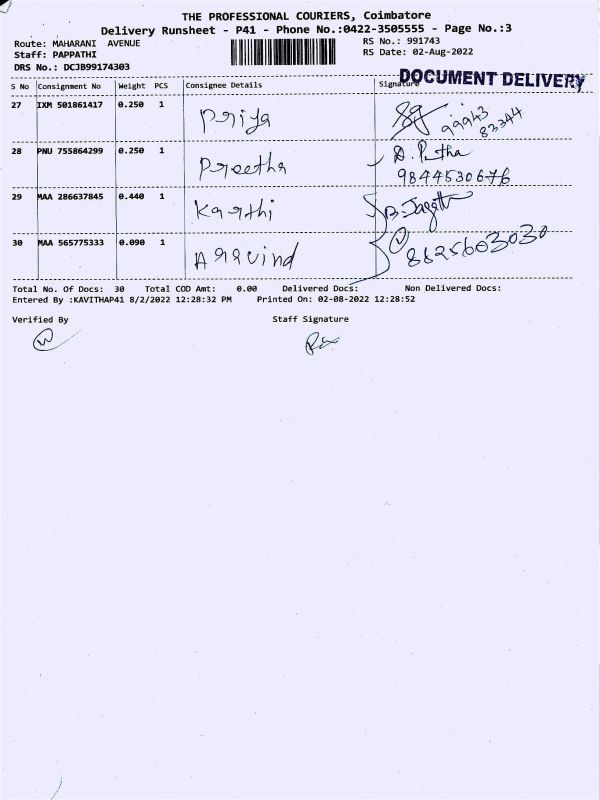 THE PROFESSIONAL COURIERS, Coimbatore
Delivery Runsheet - P41 - Phone No.:0422-3505555 - Page No.:3
Route: MAHARANI AVENUE
RS No.: 991743
Staff: PAPPATHI
RS Date: 02-Aug-2022
DRS No.: DCJB99174303
DOCUMENT DELIVERY
S No Consignment No Weight PCS Consignee Details Signature
27 IXM 501861417 0.250 1 Priya 99943 83344
28 PNU 755864299 0.250 1 Preetha
9844530676
29 MAA 286637845 0.440 1 Karthi
30 MAA 565775333 0.090 1 Aravind 8825603030
Total No. Of Docs: 30 Total COD Amt: 0.00 Delivered Docs: Non Delivered Docs:
Entered By :KAVITHAP41 8/2/2022 12:28:32 PM Printed On: 02-08-2022 12:28:52
Verified By Staff Signature